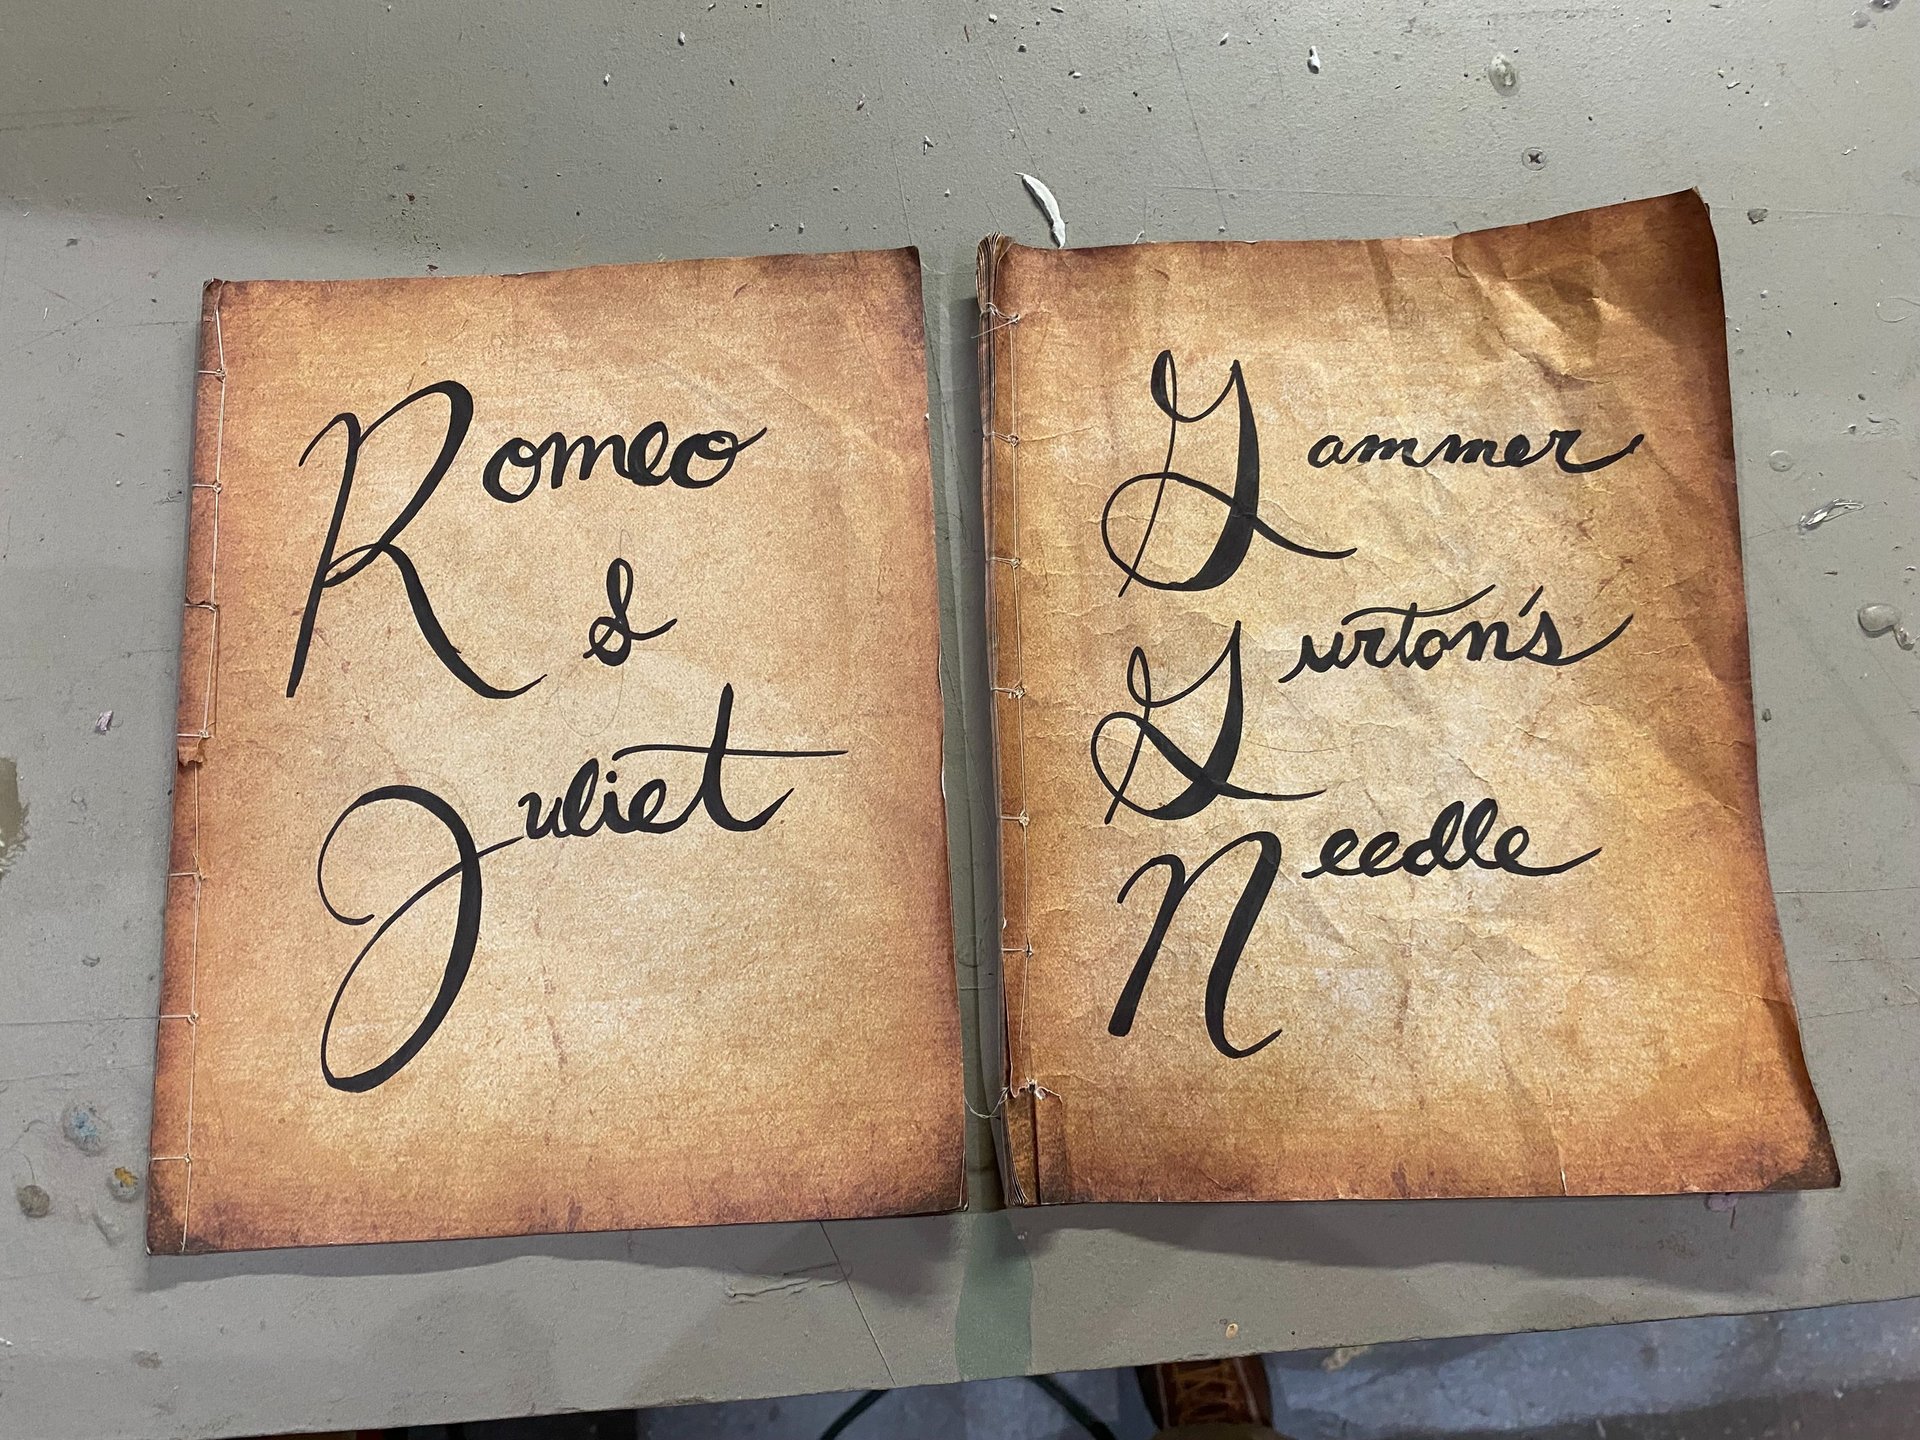 Romeo
&
Juliet
Gammer
Gurton's
Needle